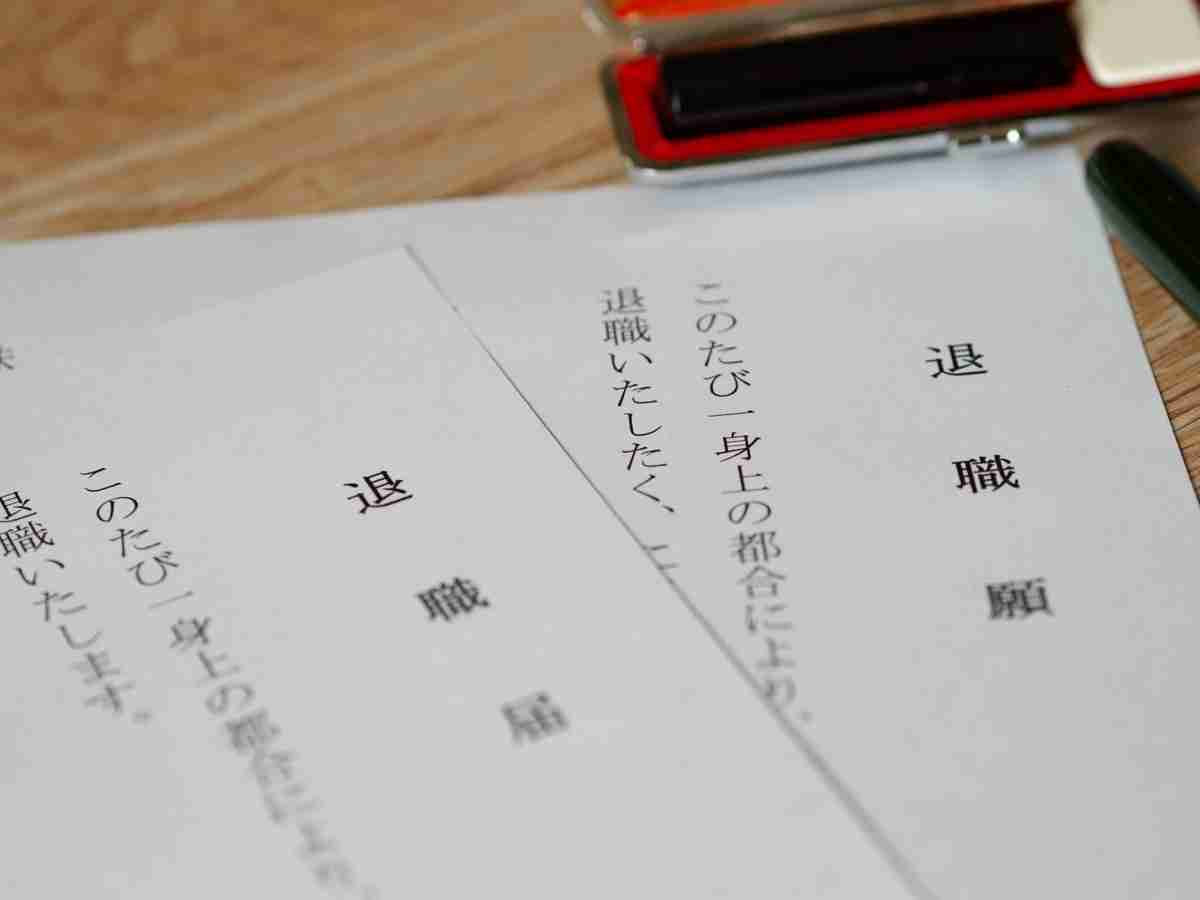 退職願
このたび一身上の都合により、
退職いたしたく、こ
退職届
このたび一身上の都合により
退職いたします。